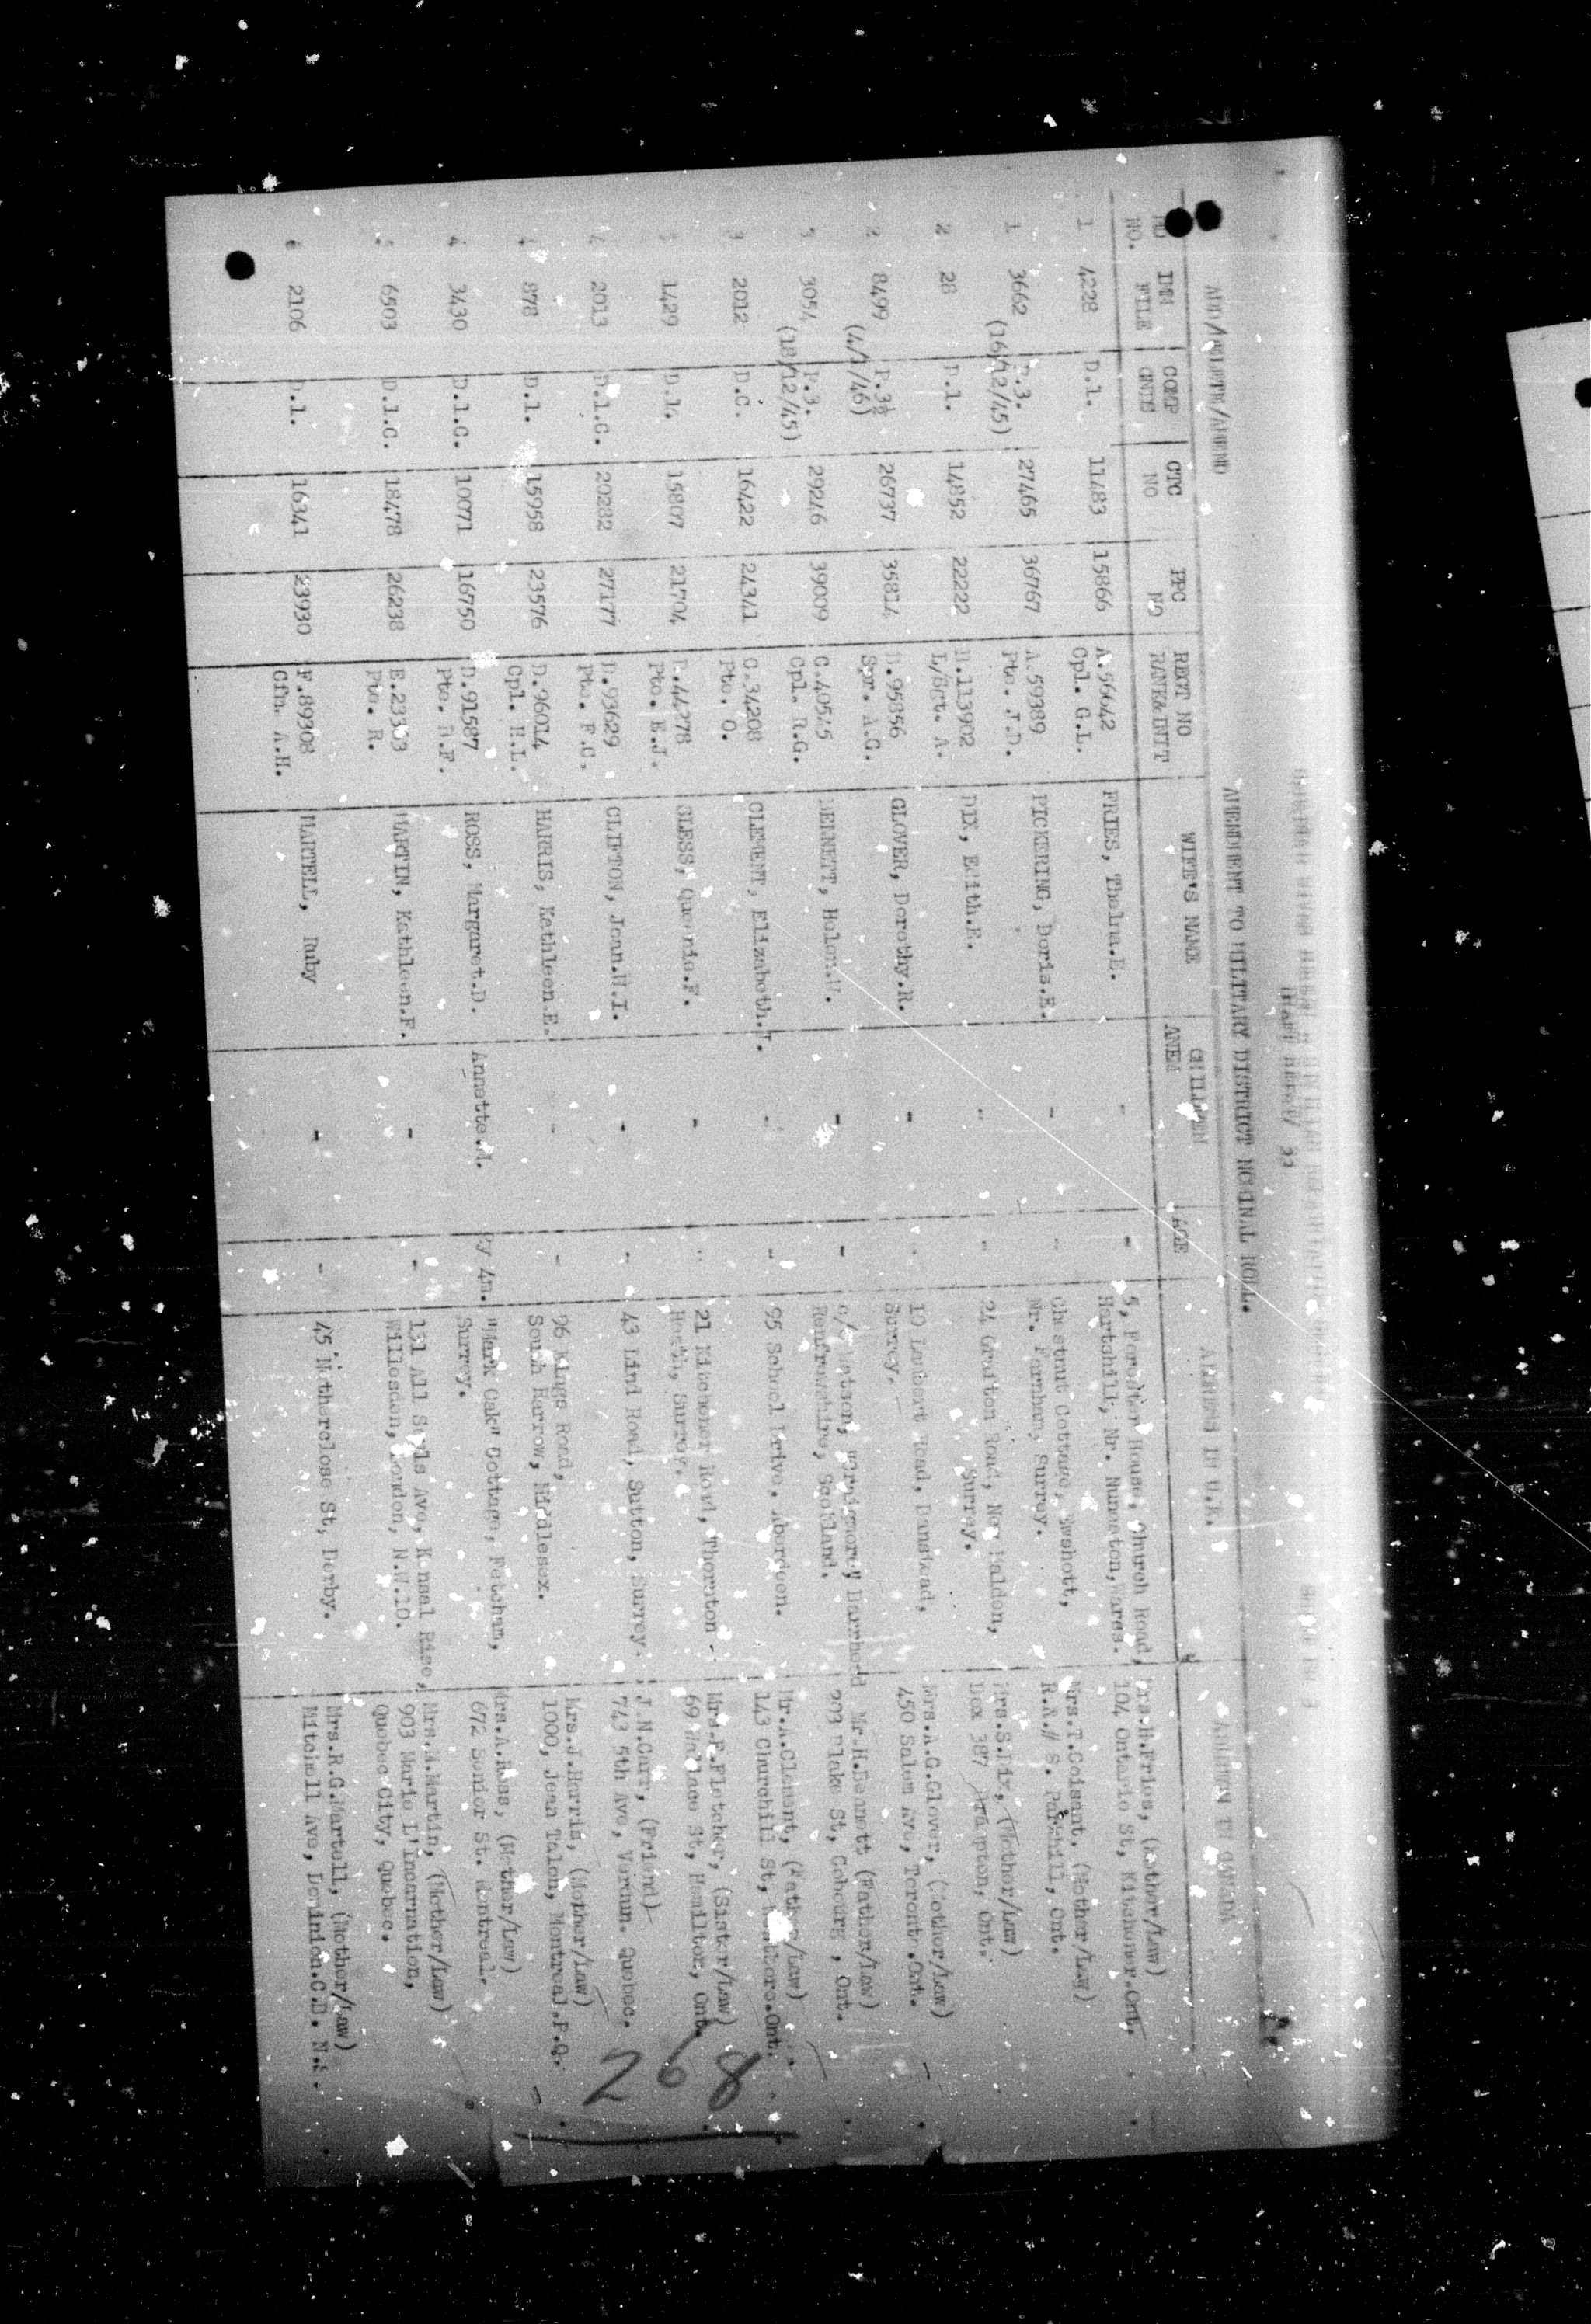 ADD/DELETE/AMEND AMENDMENT TO MILITARY DISTRICT NOMINAL ROLL.
MD NO. IMM FILE COMP GNTS CTC NO PPC NO REGT NO RANK&INIT WIFE'S NAME CHILDREN AGE ADDRESS IN U.K. ADDRESS IN CANADA
1 4228 D.1. 11483 15866 A.56642 FRIES, Thelma.E. - - 5, Forester House, Church Road, Mrs.H.Fries, (Mother/Law)
Cpl. G.L. Hartshill, Nr. Nuneaton,Warcs. 104 Ontario St, Kitchener.Ont.
1 3662 P.3. 27465 36767 A.59389 PICKERING, Doris.E. - - Chestnut Cottage, Ewshott, Mrs.T.Coisant, (Mother/Law)
(16/12/45) Pte. J.D. Nr. Farnham, Surrey. R.R.# 8. Parkhill, Ont.
2 28 D.1. 14852 22222 B.113902 DIX, Edith.E. - - 24 Grafton Road, New Malden, Mrs.S.Dix, (Mother/Law)
L/Sgt. A. Surrey. Box 387 Brampton, Ont.
2 8499 P.3½ 26737 35814 B.95856 GLOVER, Dorothy.R. - - 10 Lambert Road, Banstead, Mrs.A.G.Glover, (Mother/Law)
(4/1/46) Spr. A.G. Surrey. 450 Salem Ave, Toronto.Ont.
3 3054 P.3. 29246 39009 C.40545 BENNETT, Helen.W. - - c/o Watson, Barrhead Mr.H.Bennett (Father/Law)
(18/12/45) Cpl. R.G. Renfrewshire, Scotland. 203 Blake St, Cobourg, Ont.
3 2012 D.C. 16422 24341 C.34208 CLEMENT, Elizabeth. - - 95 School Drive. Aberdeen. Mr.A.Clement, (Father/Law)
Pte. O. 143 Churchill St, Ont.
1429 D.1. 15807 21704 B.44278 BLESS, Queenie.F. - - 21 Kitchener Road, Thornton - Mrs.F.Fletcher, (Sister/Law)
Pte. E.J. Heath, Surrey. 69 Wallace St, Hamilton, Ont.
4 2013 D.1.C. 20282 27177 D.93629 CLIFTON, Joan.W.I. - - 43 Lind Road, Sutton, Surrey. J.N.Carr, (Friend)
Pte. F.C. 743 5th Ave, Verdun. Quebec.
4 878 D.1. 15958 23576 D.96014 HARRIS, Kathleen.E. - - 96 Kings Road, Mrs.J.Harris, (Mother/Law)
Cpl. H.L. South Harrow, Middlesex. 1000, Jean Talon, Montreal.P.Q.
4 3430 D.1.C. 10071 16750 D.91587 ROSS, Margaret.D. Annette.M. 4m. "Mark Oak" Cottage, Fetcham, Mrs.A.Ross, (Mother/Law)
Pte. D.F. Surrey. 672 Senior St. Montreal.
6503 D.1.C. 18478 26238 E.23353 MARTIN, Kathleen.F. - - 131 All Souls Ave, Kensal Rise, Mrs.M.Martin, (Mother/Law)
Pte. R. Willesden, London, N.W.10. 903 Marie L'Incarnation,
Quebec City, Quebec.
6 2106 D.1. 16341 23930 F.89308 MARTELL, Ruby - - 45 Netherclose St, Derby. Mrs.R.G.Martell, (Mother/Law)
Cfn. A.H. Mitchell Ave, Dominion.C.B. N.S.
268